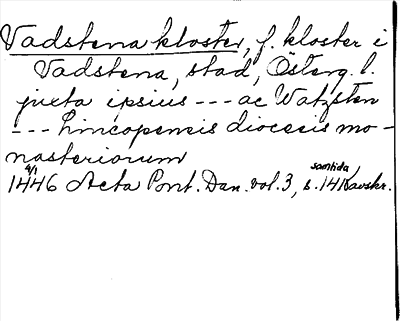 Vadstena kloster, f. kloster i
Vadstena, stad, Österg. l.
juxta ipsius --- ac Watzsten
--- Lincopensis diocesis mo-
nasteriorum
1446 4/1 Acta Pont. Dan. vol. 3, s. 141 samtida avskr.